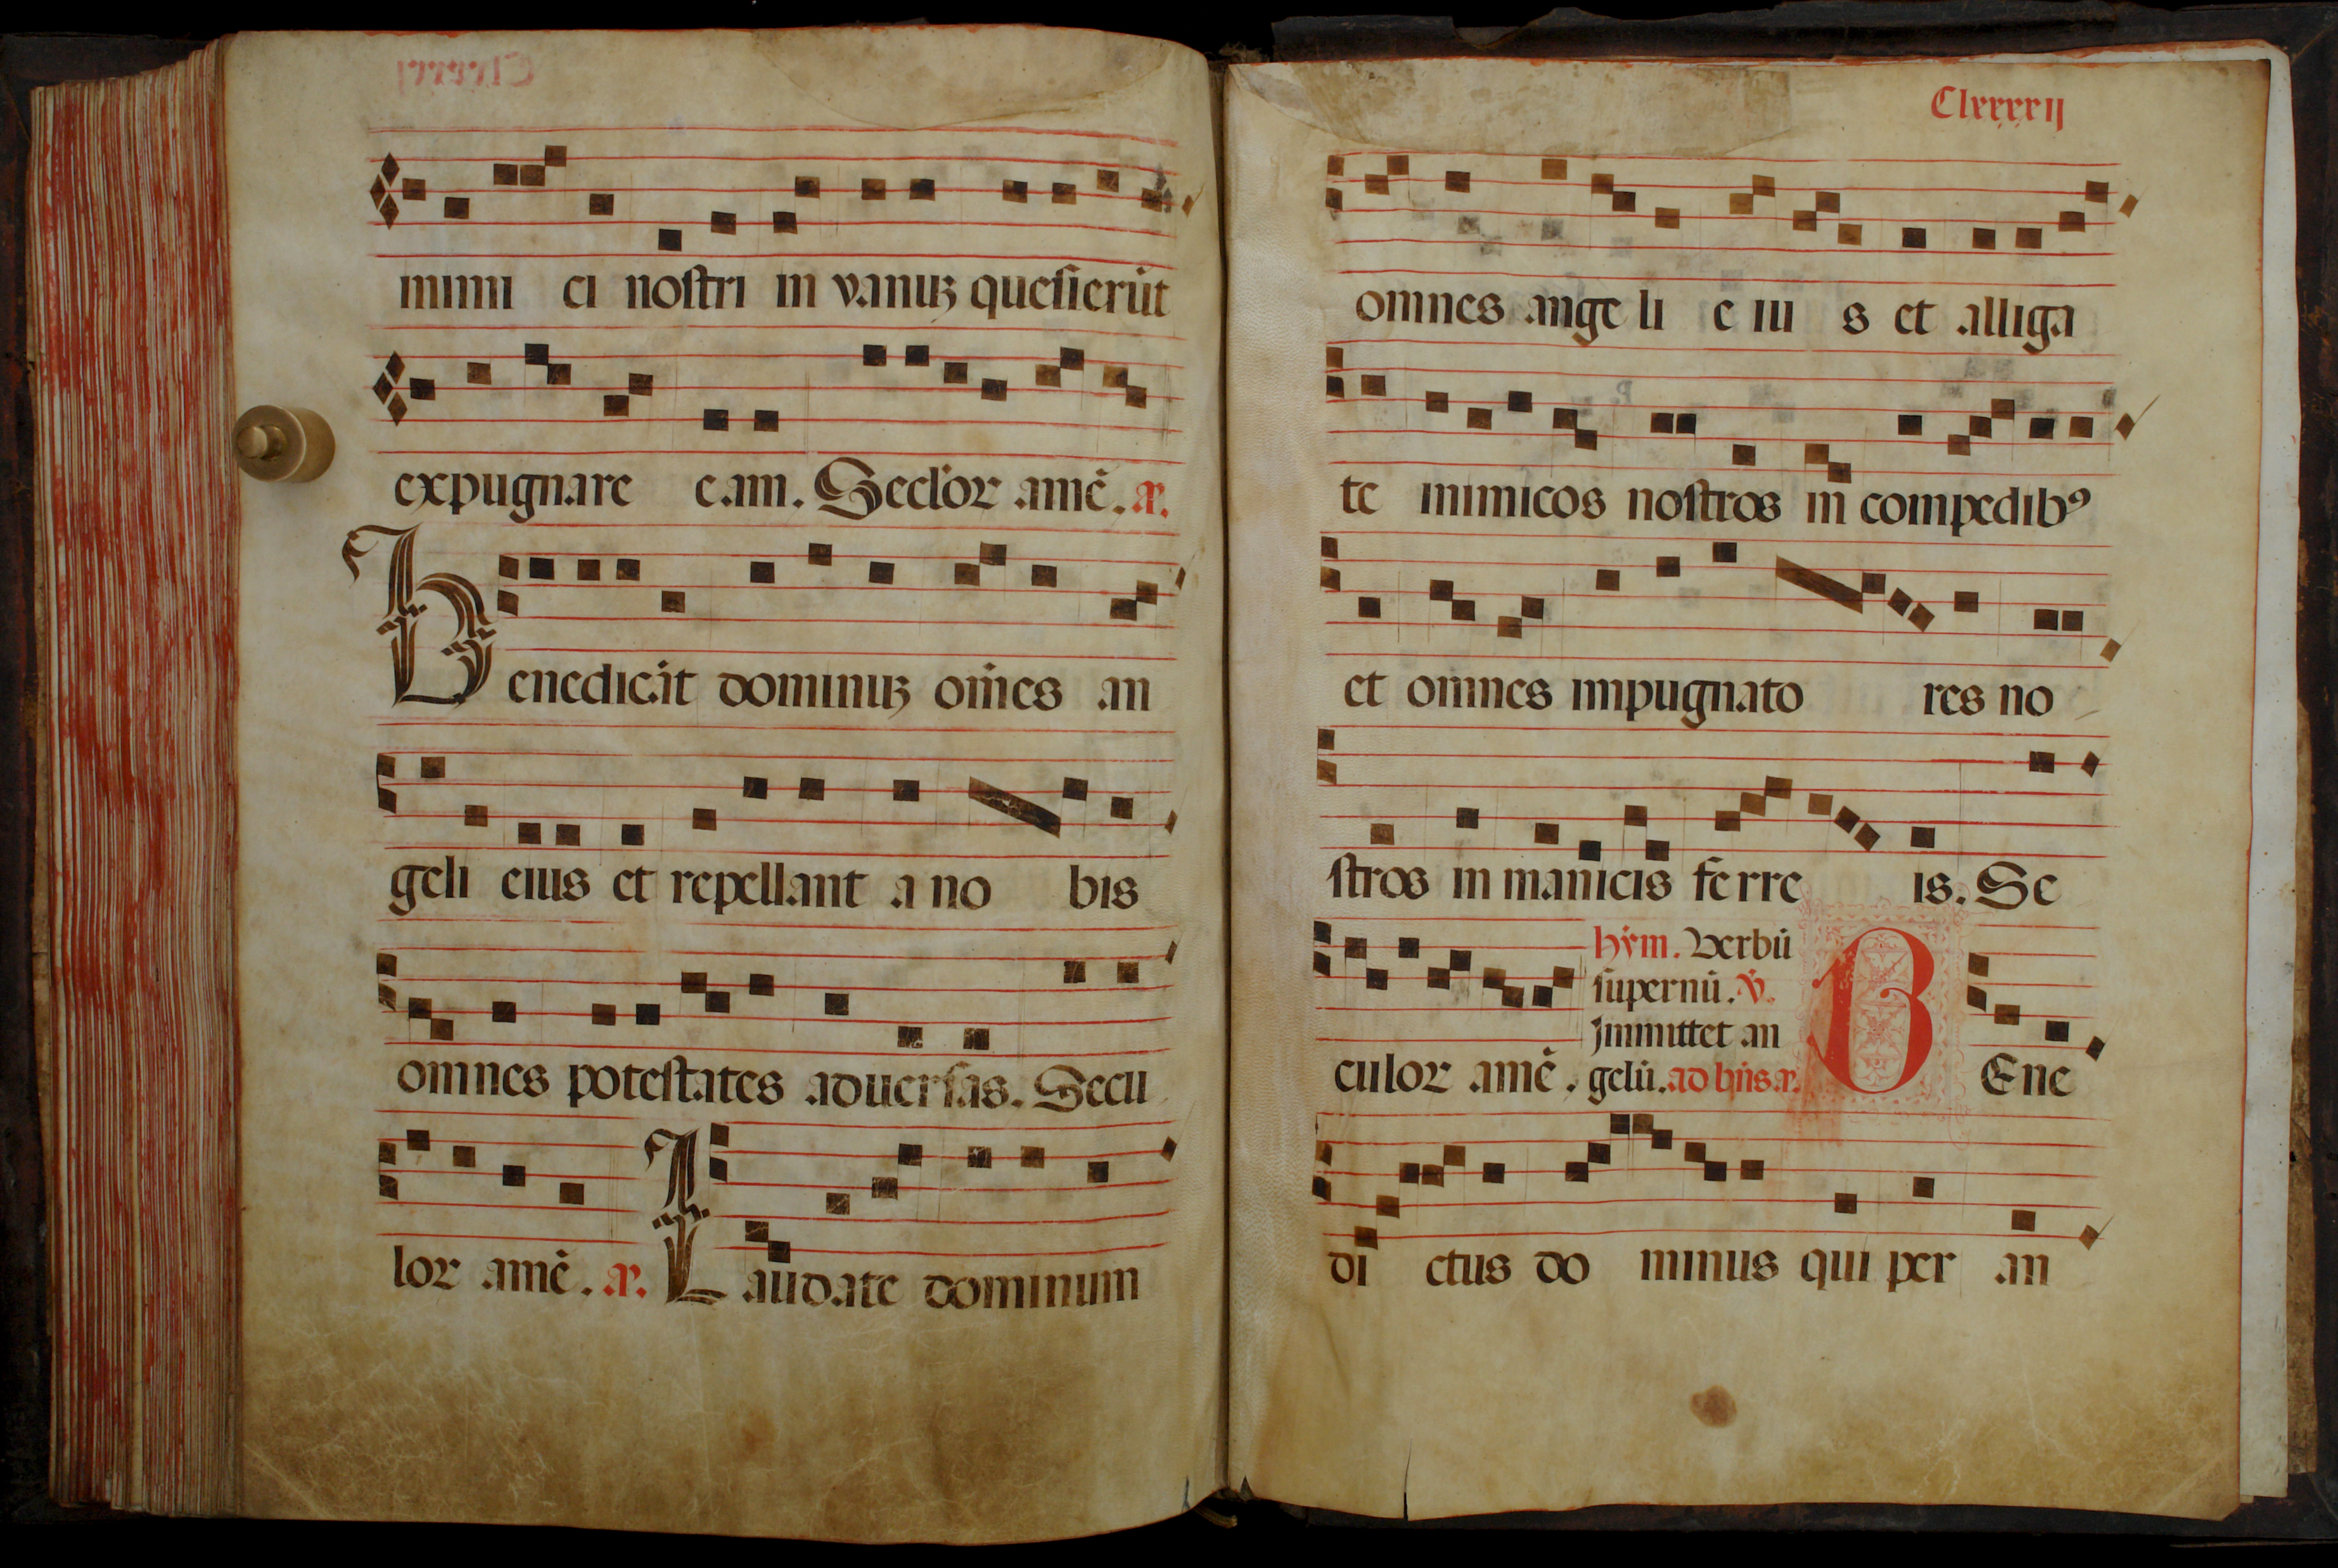 inimi ci nostri in vanuꝫ quesierūt
expugnare eam. Seclor amē. a.
Benedicāt dominuꝫ om̄es an
geli eius et repellant a no bis
omnes potestates aduersas. Secu
lor amē. a. Laudate dominum
Clxxxxii
omnes ange li e iu s et alliga
te inimicos nostros in compedibꝰ
et omnes impugnato res no
stros in manicis fe rre is. Se
hȳm. Verbū
supernū. v̄.
Jmmittet an
culor amē. gelū. ad bn̄s a. B Ene
di ctus do minus qui per an